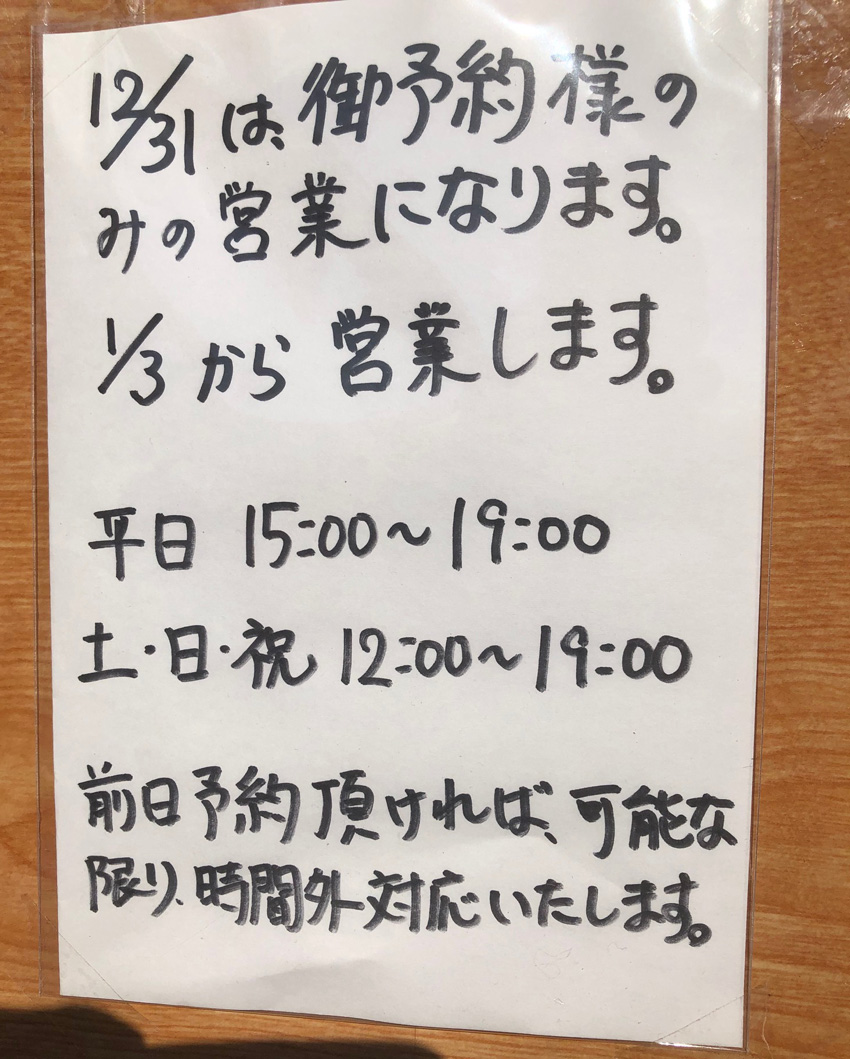 12/31は、御予約様の
みの営業になります。
1/3から営業します。
平日 15:00〜19:00
土・日・祝 12:00〜19:00
前日予約頂ければ、可能な
限り、時間外対応いたします。